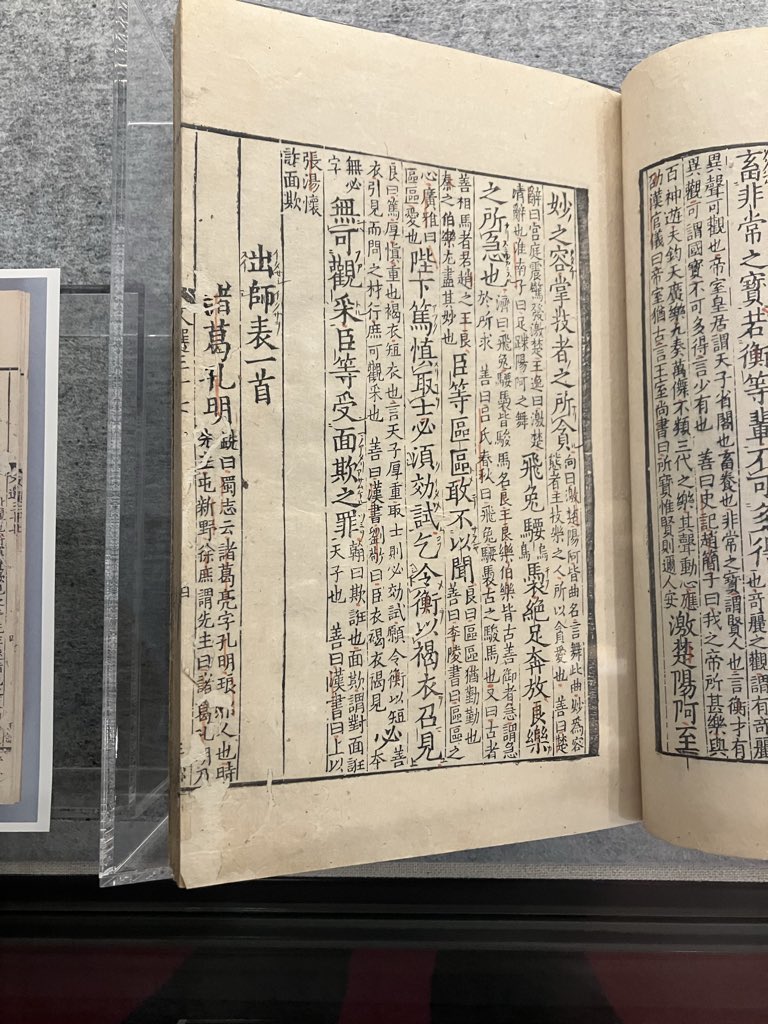 畜非常之寶若衡等輩不可多得
也奇麗之觀謂有奇麗
異聲可觀也帝室皇居謂天子省閣也畜養也非常之寶謂賢人也言衡才有
異觀可謂國寶不可多得言少有也 善曰史記趙簡子曰我之帝所甚樂與
百神遊夫鈞天廣樂九奏萬儛不類三代之樂其聲動心應
劭漢官儀曰帝室猶古言王室尚書曰所寶惟賢則邇人安
激楚陽阿至
妙之容掌技者之所貪
向曰激楚陽阿皆曲名言舞此曲妙為容
態者主技樂之人所以貪愛也 善曰楚
辭曰宮庭震驚發激楚王逸曰激楚
清聲也淮南子曰足蹀陽阿之舞
飛兔騕褭絕足奔放良樂
之所急也
濟曰飛兔騕褭皆駿馬名良王良樂伯樂皆古善御者急謂急
於所求 善曰呂氏春秋曰飛兔騕褭古之駿馬也又曰古者
善相馬者若趙之王良
秦之伯樂尤盡其妙也
臣等區區敢不以聞
良曰區區猶勤勤也
善曰李陵書曰區區之
心廣雅曰
區區愛也
陛下篤慎取士必須効試乞令衡以褐衣召見
良曰篤厚慎重也褐衣短衣也言天子厚重取士則必効試願令衡以短
衣引見而問之材行庶可觀采也 善曰漢書劉敬曰臣衣褐衣褐見
必
善
本
無必
字
無可觀采臣等受面欺之罪
翰曰欺誑也面欺謂對面誑
天子也 善曰漢書曰上以
張湯懷
詐面欺
出師表一首
諸葛孔明
銑曰蜀志云諸葛亮字孔明琅邪人也時
先主屯新野徐庶謂先主曰諸葛孔明乃